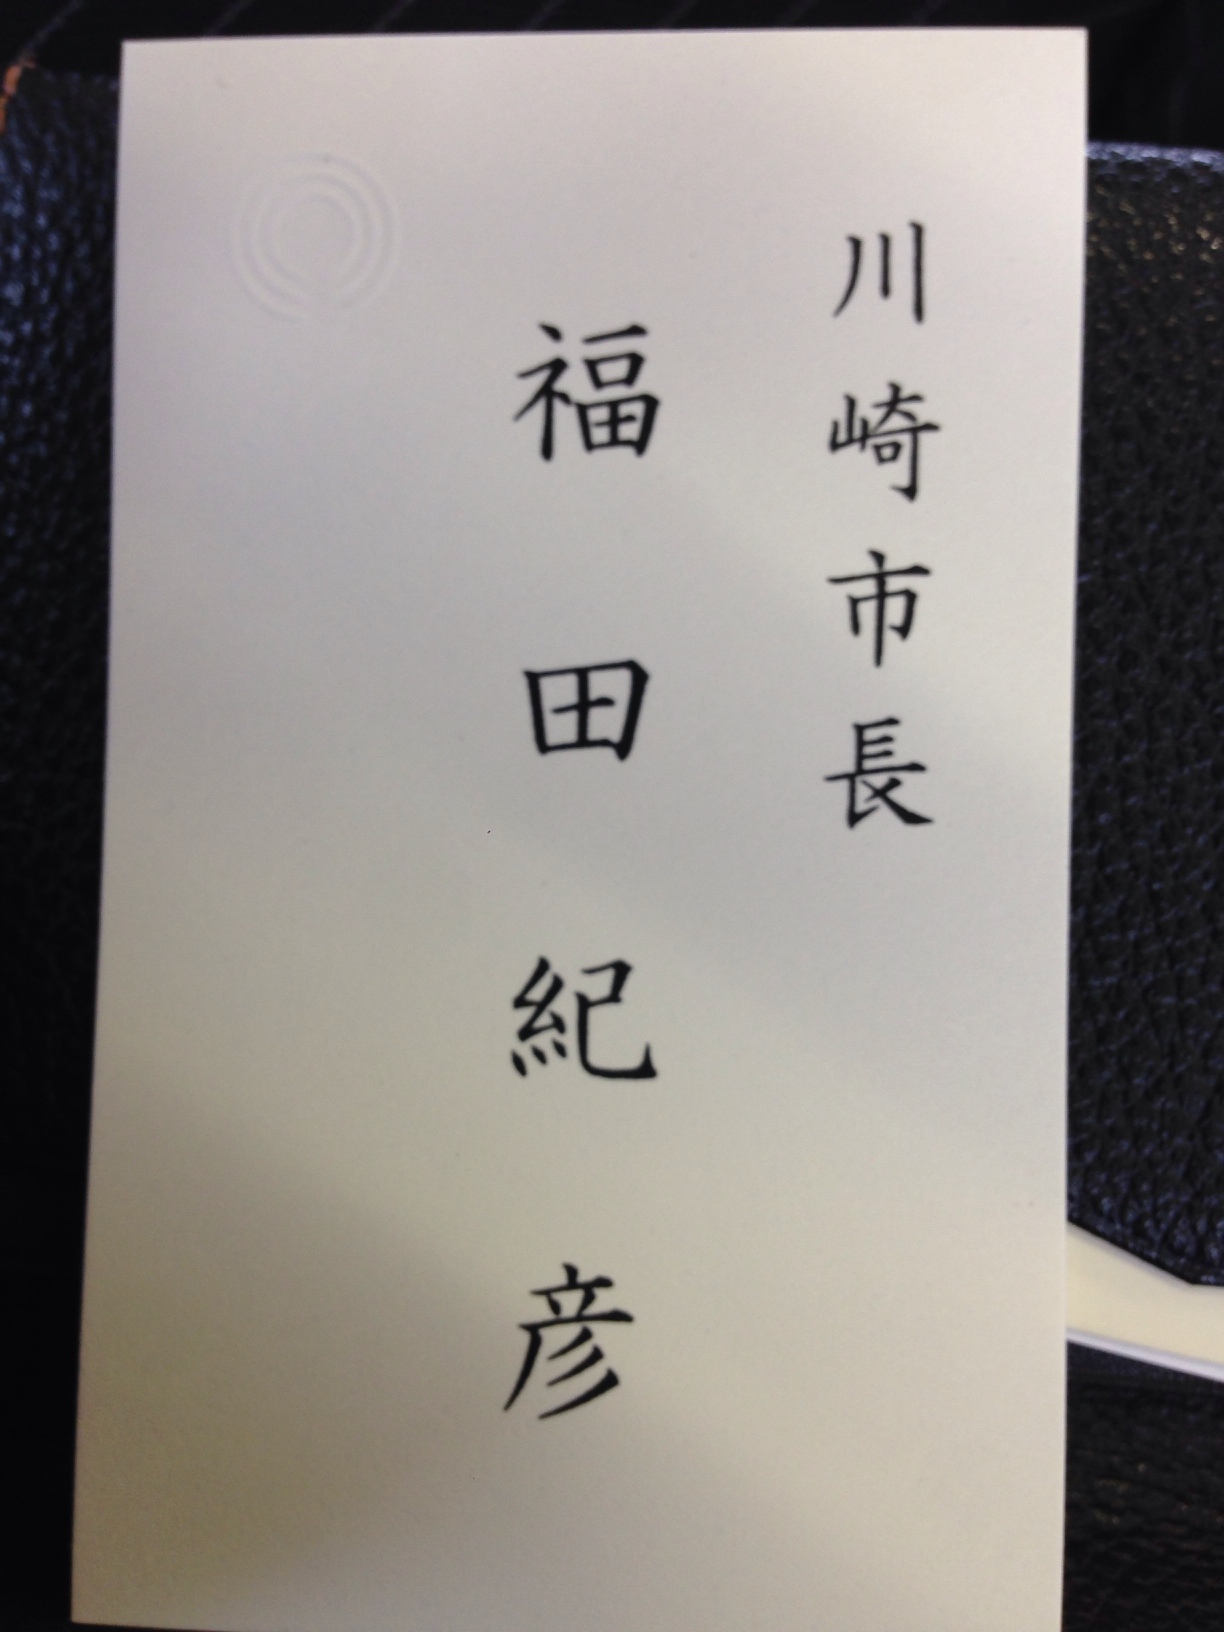 川崎市長
福田紀彦